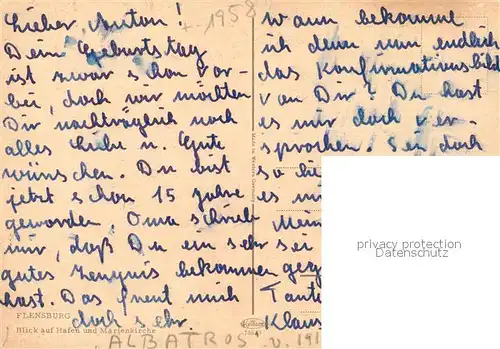 Lieber Anton!
+ 1958
Dein Geburtstag
ist zwar schon vor-
bei, doch wir möchten
Dir nachträglich noch
alles Liebe u. Gute
wünschen. Du bist
jetzt schon 15 Jahre
geworden. Oma schrieb
mir, daß Du ein sehr
gutes Zeugnis bekommen
hast. Das freut mich
doch sehr.
FLENSBURG
Blick auf Hafen und Marienkirche
ALBATROS
Made in Western Germany
Wann bekomme
ich denn nun endlich
das Konfirmationsbild
von Dir? Du hast
es mir doch ver-
sprochen. Sei doch
so
es
Mein
sei
geg
Tante
Klaus
privacy protection
Datenschutz